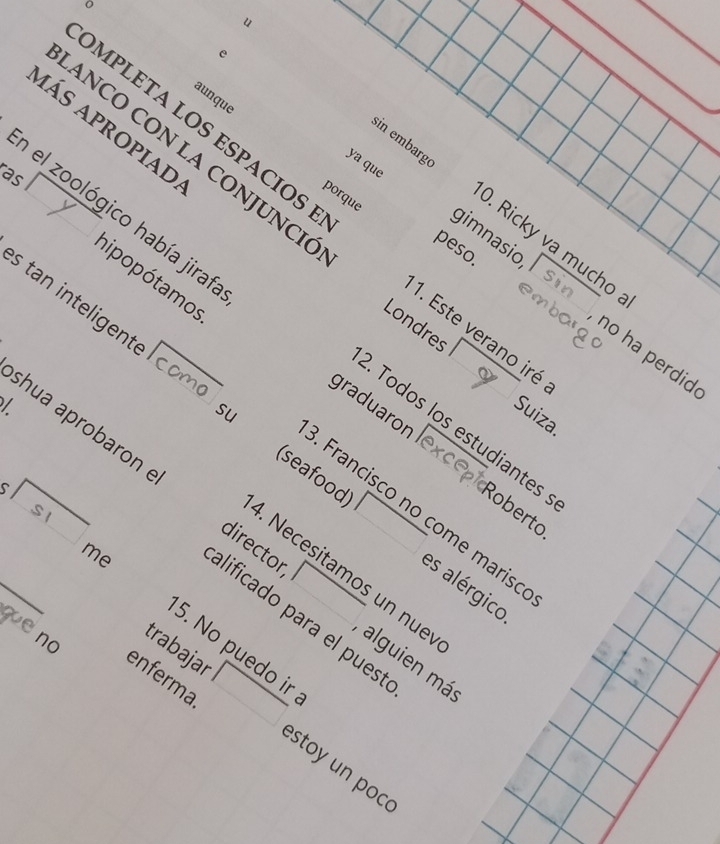 o
u
e
aunque
sin embargo
ya que
porque
COMPLETA LOS ESPACIOS EN
BLANCO CON LA CONJUNCIÓN
MÁS APROPIADA
En el zoológico había jirafas,
ras y hipopótamos.
es tan inteligente como su
Joshua aprobaron el
s si me
que no
10. Ricky va mucho al
gimnasio, sin embargo, no ha perdido
peso.
11. Este verano iré a
Londres o Suiza.
12. Todos los estudiantes se
graduaron excepto Roberto.
13. Francisco no come mariscos
(seafood) es alérgico.
14. Necesitamos un nuevo
director, , alguien más
calificado para el puesto.
15. No puedo ir a
trabajar estoy un poco
enferma.